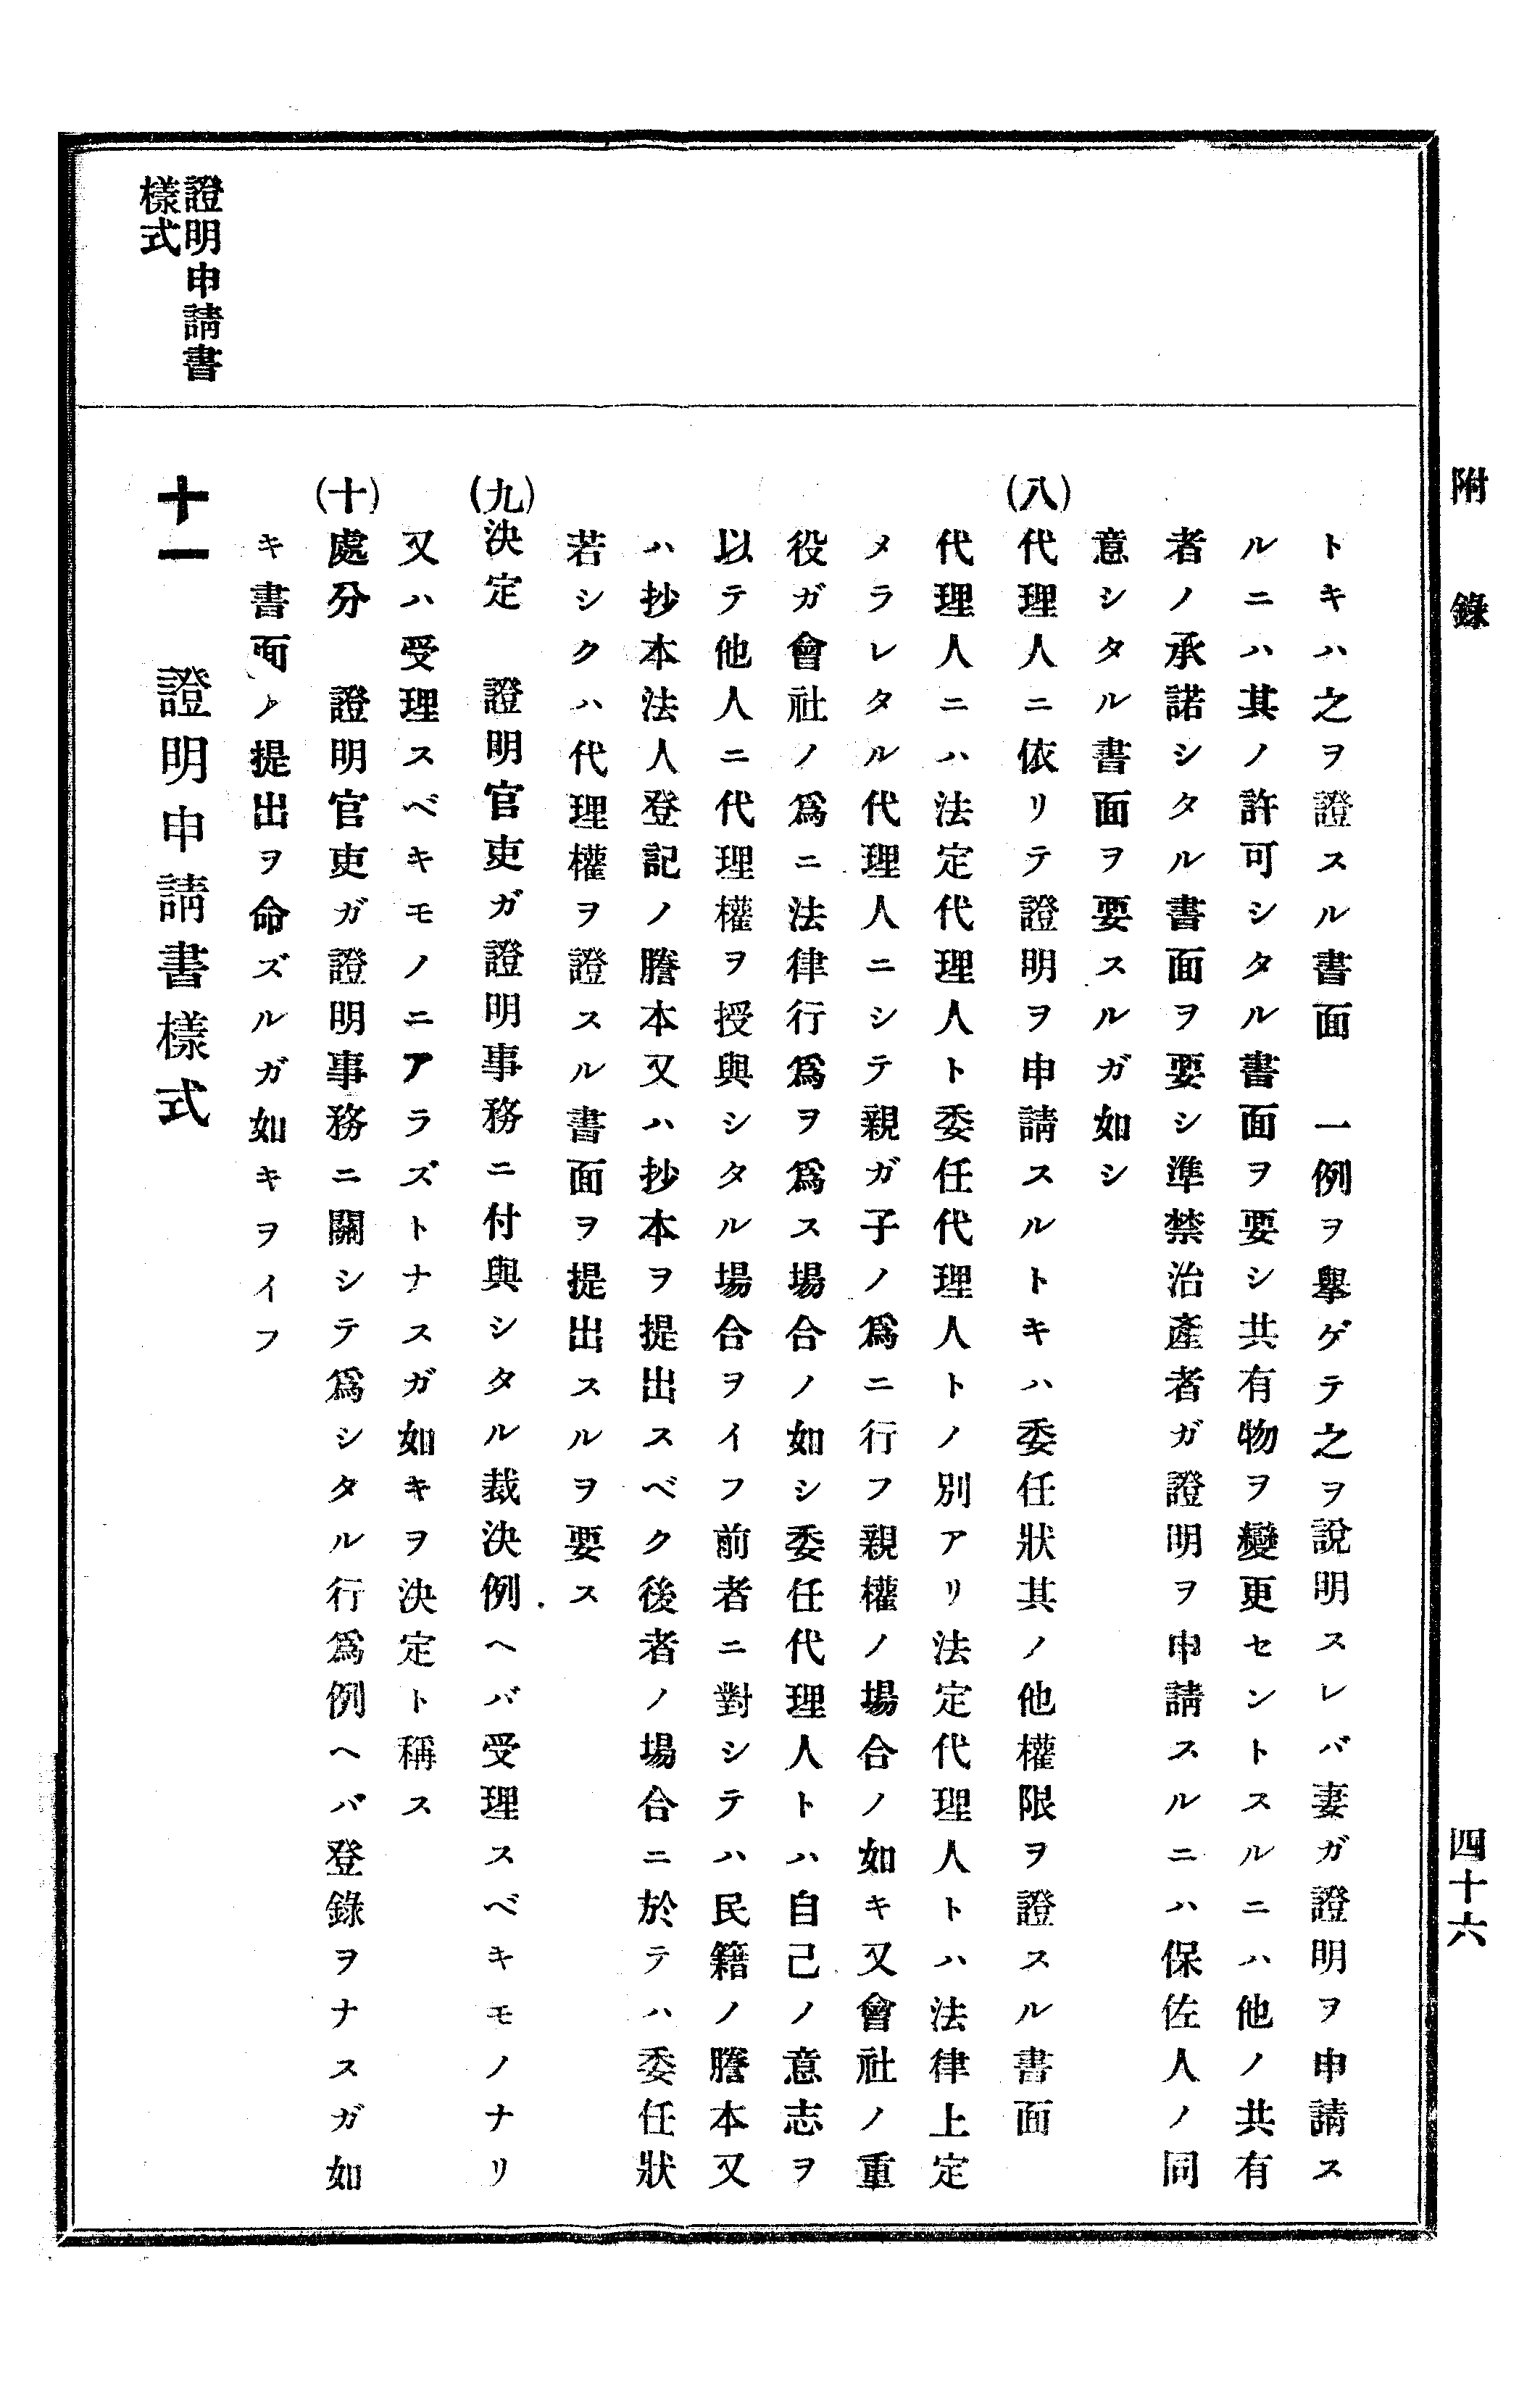 附錄
四十六
證明申請書
樣式
トキハ之ヲ證スル書面　一例ヲ擧ゲテ之ヲ說明スレバ妻ガ證明ヲ申請ス
ルニハ其ノ許可シタル書面ヲ要シ共有物ヲ變更セントスルニハ他ノ共有
者ノ承諾シタル書面ヲ要シ準禁治產者ガ證明ヲ申請スルニハ保佐人ノ同
意シタル書面ヲ要スルガ如シ
(八)代理人ニ依リテ證明ヲ申請スルトキハ委任狀其ノ他權限ヲ證スル書面
代理人ニハ法定代理人ト委任代理人トノ別アリ法定代理人トハ法律上定
メラレタル代理人ニシテ親ガ子ノ爲ニ行フ親權ノ場合ノ如キ又會社ノ重
役ガ會社ノ爲ニ法律行爲ヲ爲ス場合ノ如シ委任代理人トハ自己ノ意志ヲ
以テ他人ニ代理權ヲ授與シタル場合ヲイフ前者ニ對シテハ民籍ノ謄本又
ハ抄本法人登記ノ謄本又ハ抄本ヲ提出スベク後者ノ場合ニ於テハ委任狀
若シクハ代理權ヲ證スル書面ヲ提出スルヲ要ス
(九)決定　證明官吏ガ證明事務ニ付與シタル裁決例ヘバ受理スベキモノナリ
又ハ受理スベキモノニアラズトナスガ如キヲ決定ト稱ス
(十)處分　證明官吏ガ證明事務ニ關シテ爲シタル行爲例ヘバ登錄ヲナスガ如
キ書面ノ提出ヲ命ズルガ如キヲイフ
十一　證明申請書樣式